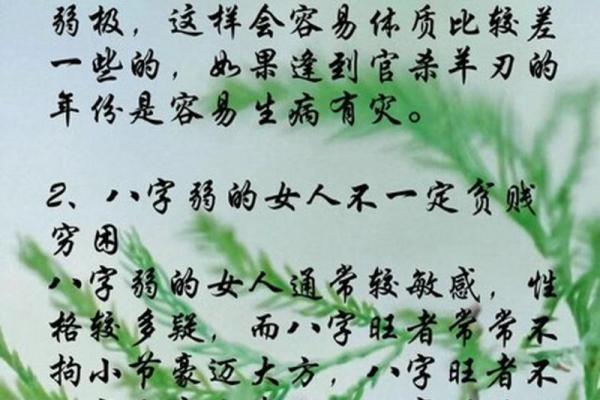 弱极，这样会容易体质比较差
一些的，如果逢到官杀羊刃的
年份是容易生病有灾。
2、八字弱的女人不一定贫贱
穷困
八字弱的女人通常较敏感，性
格较多疑，而八字旺者常常不
拘小节豪迈大方，八字旺者不